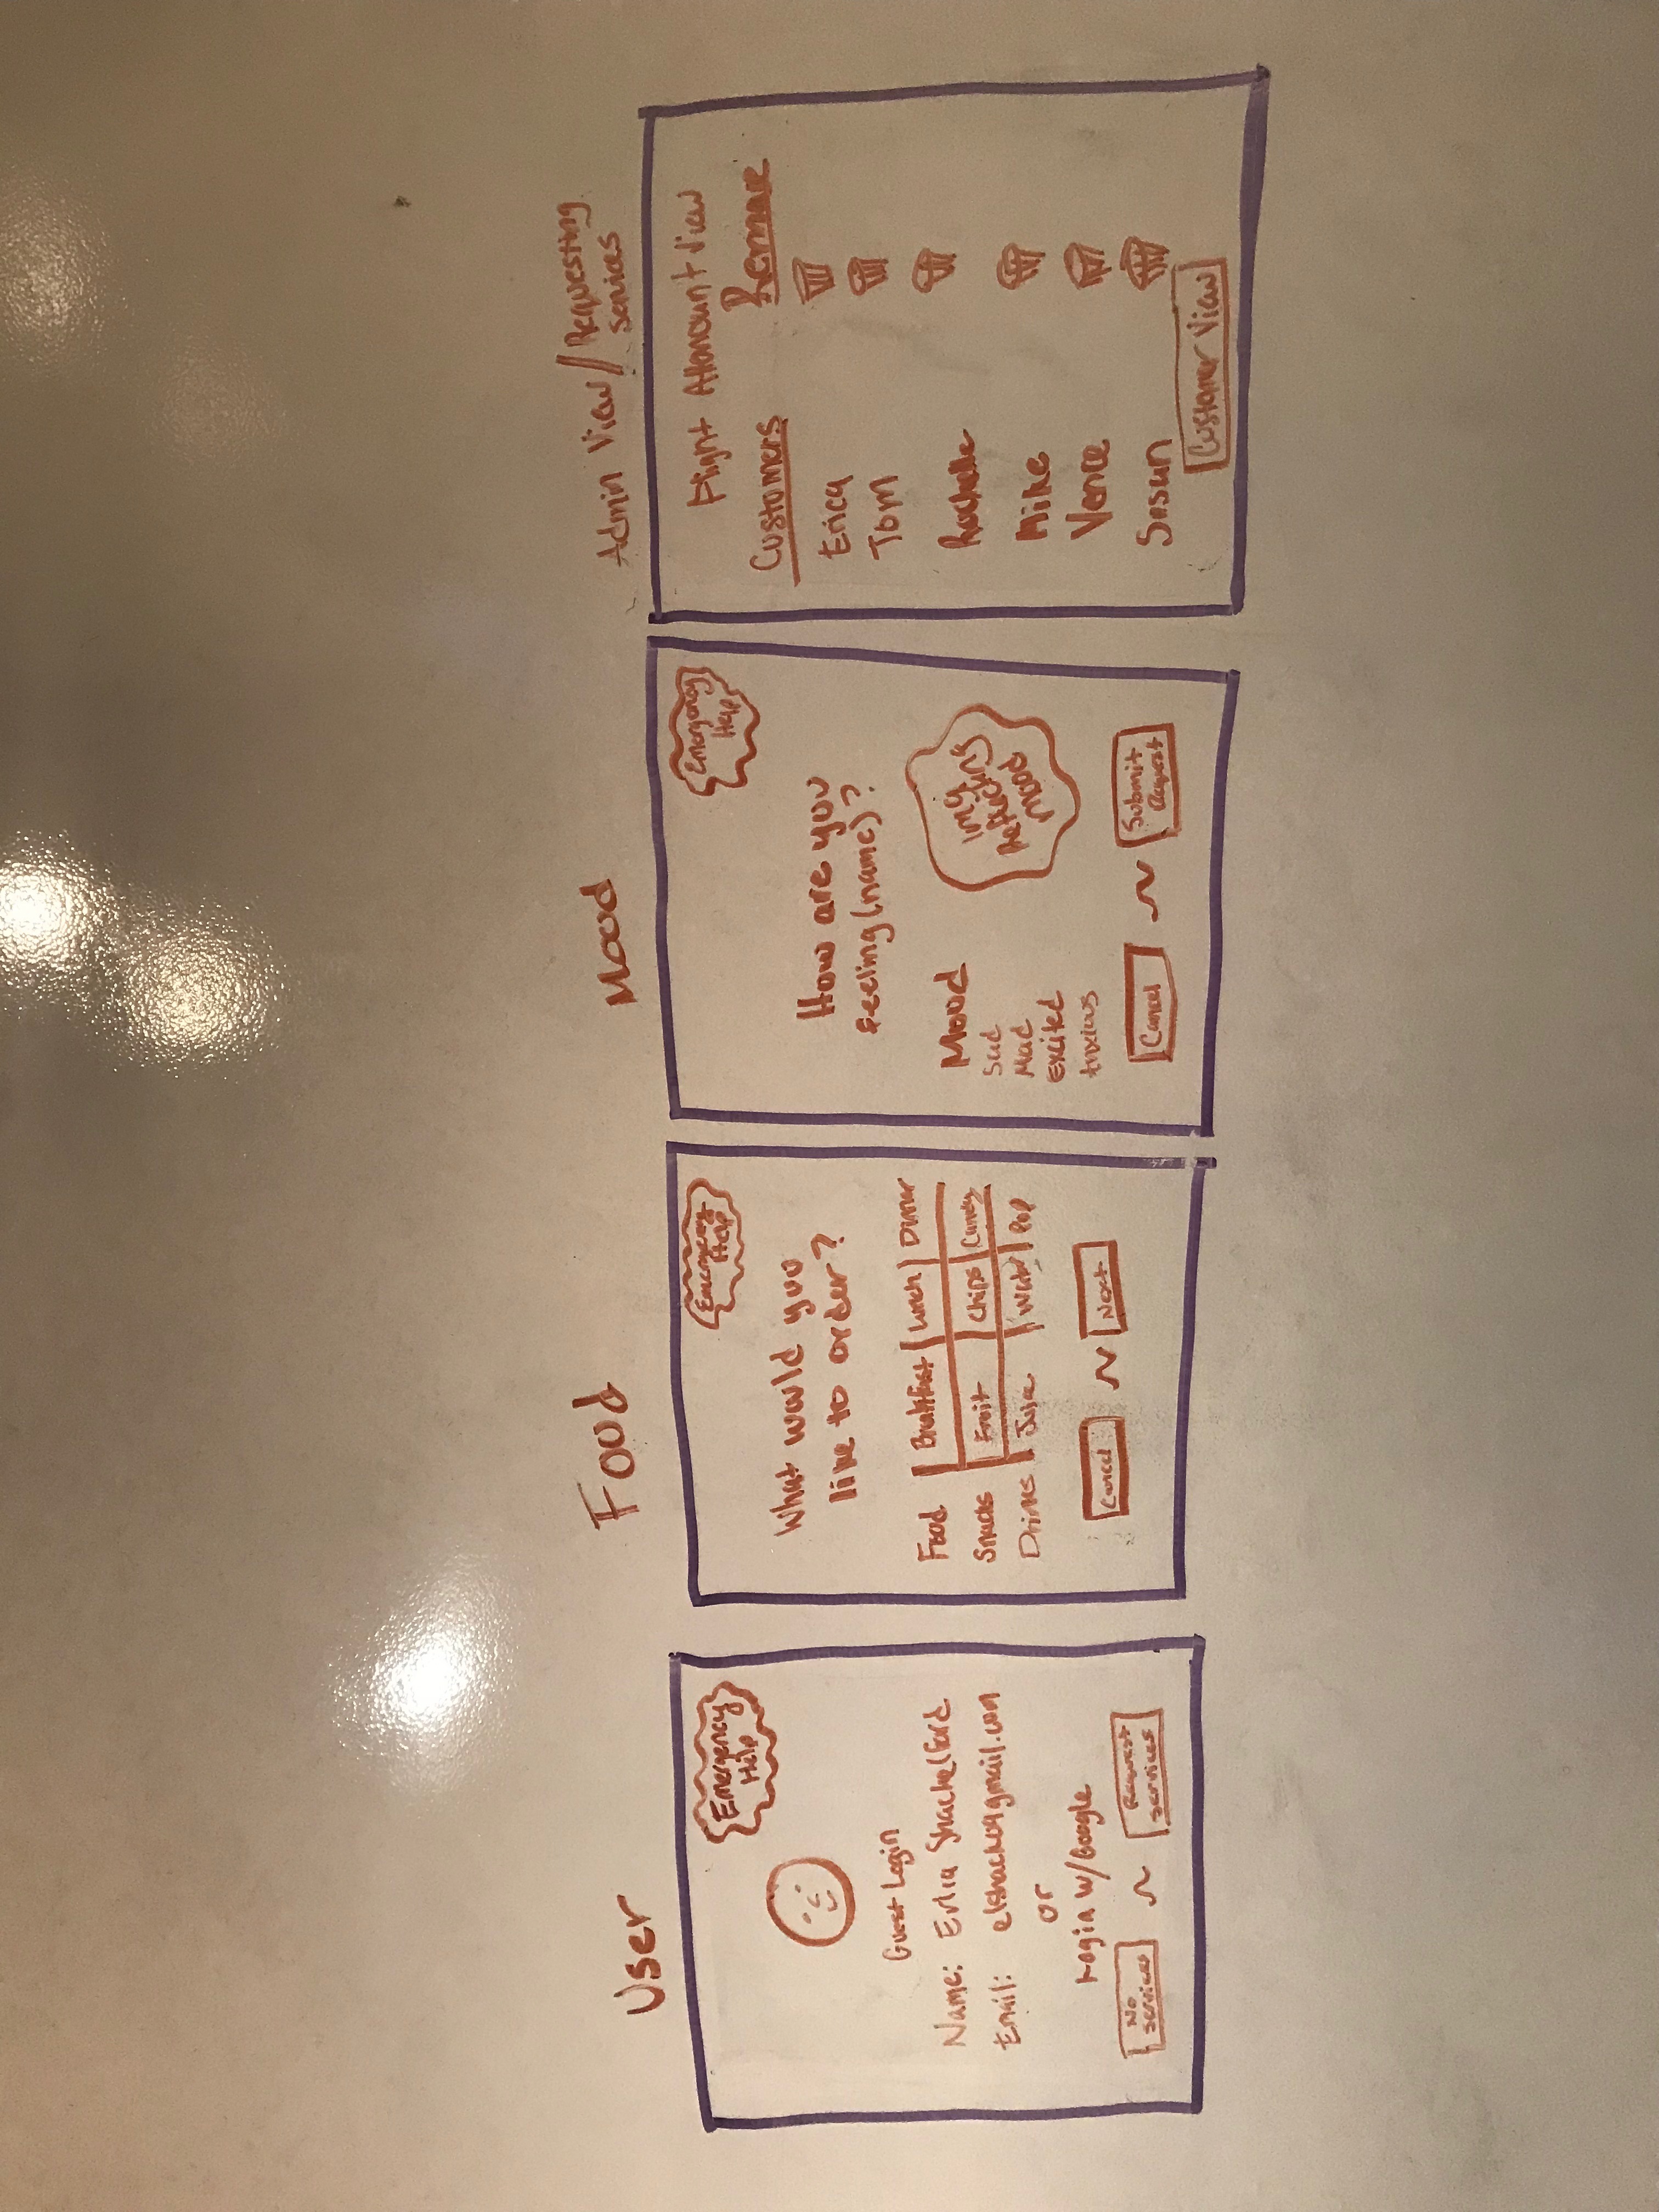 User
Emergency
Help
Guest Login
Name: Erica Shackelford
Email: elshack09gmail.com
or
Login w/Google
No
services
~
Request
services
Food
Emergency
Help
What would you
like to order?
Food | Breakfast | Lunch | Dinner
Snacks | Fruit | Chips | Candy
Drinks | Juice | Water | Pop
Cancel ~ Next
Mood
Emergency
Help
How are you
feeling (name)?
Mood
Sad
Mad
Excited
Anxious
Img
Reflecting
Mood
Cancel
~
Submit
Request
Admin View//Requesting
Services
Flight Attendant View
Customers
Erica
Tom
Rachelle
Mike
Vence
Susan
Customer View